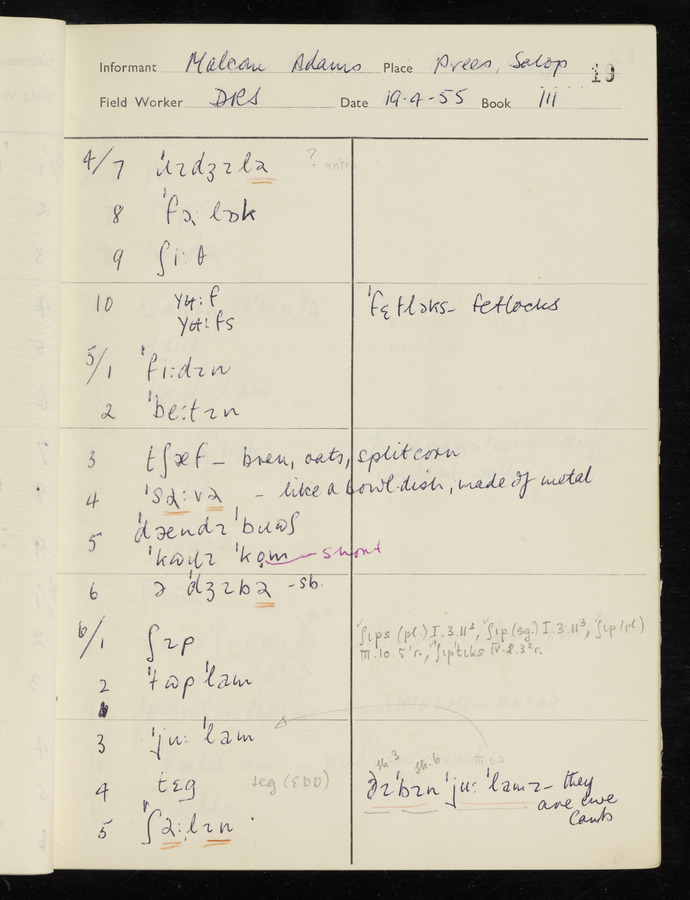 Informant Malcom Adams Place Prees, Salop 19
Field Worker DRS Date 19-4-55 Book III
4/7 ?
8 ˈfɔ lɒk
9 ʃi:θ
10 yʉ:f ˈfɛtlɒks - fetlocks
yʉ:fs
5/1 ˈfi:dɪn
2 ˈbe:tɪn
3 tʃæf - bren, oats, split corn
4 - like a bowl-dish, made of metal
5 ˈdændɪ ˈbɹɷʃ
ˈkɷɪ ˈkom - short
6 ə ˈdʒɪbə - sb.
6/1 ʃɪp ʃɪps (pl.) I.3.11³, ʃɪp (sg.) I.3.11³, ʃɪp (pl)
III.10.5 r., ˈʃɪptɪks IV.8.3² r.
2 ˈtɷp ˈlam
3 ˈju: ˈlam
4 tɛg teg (EDD) ðɪ ˈbɪn ˈju: ˈlamz - they
are ewe
lambs
5